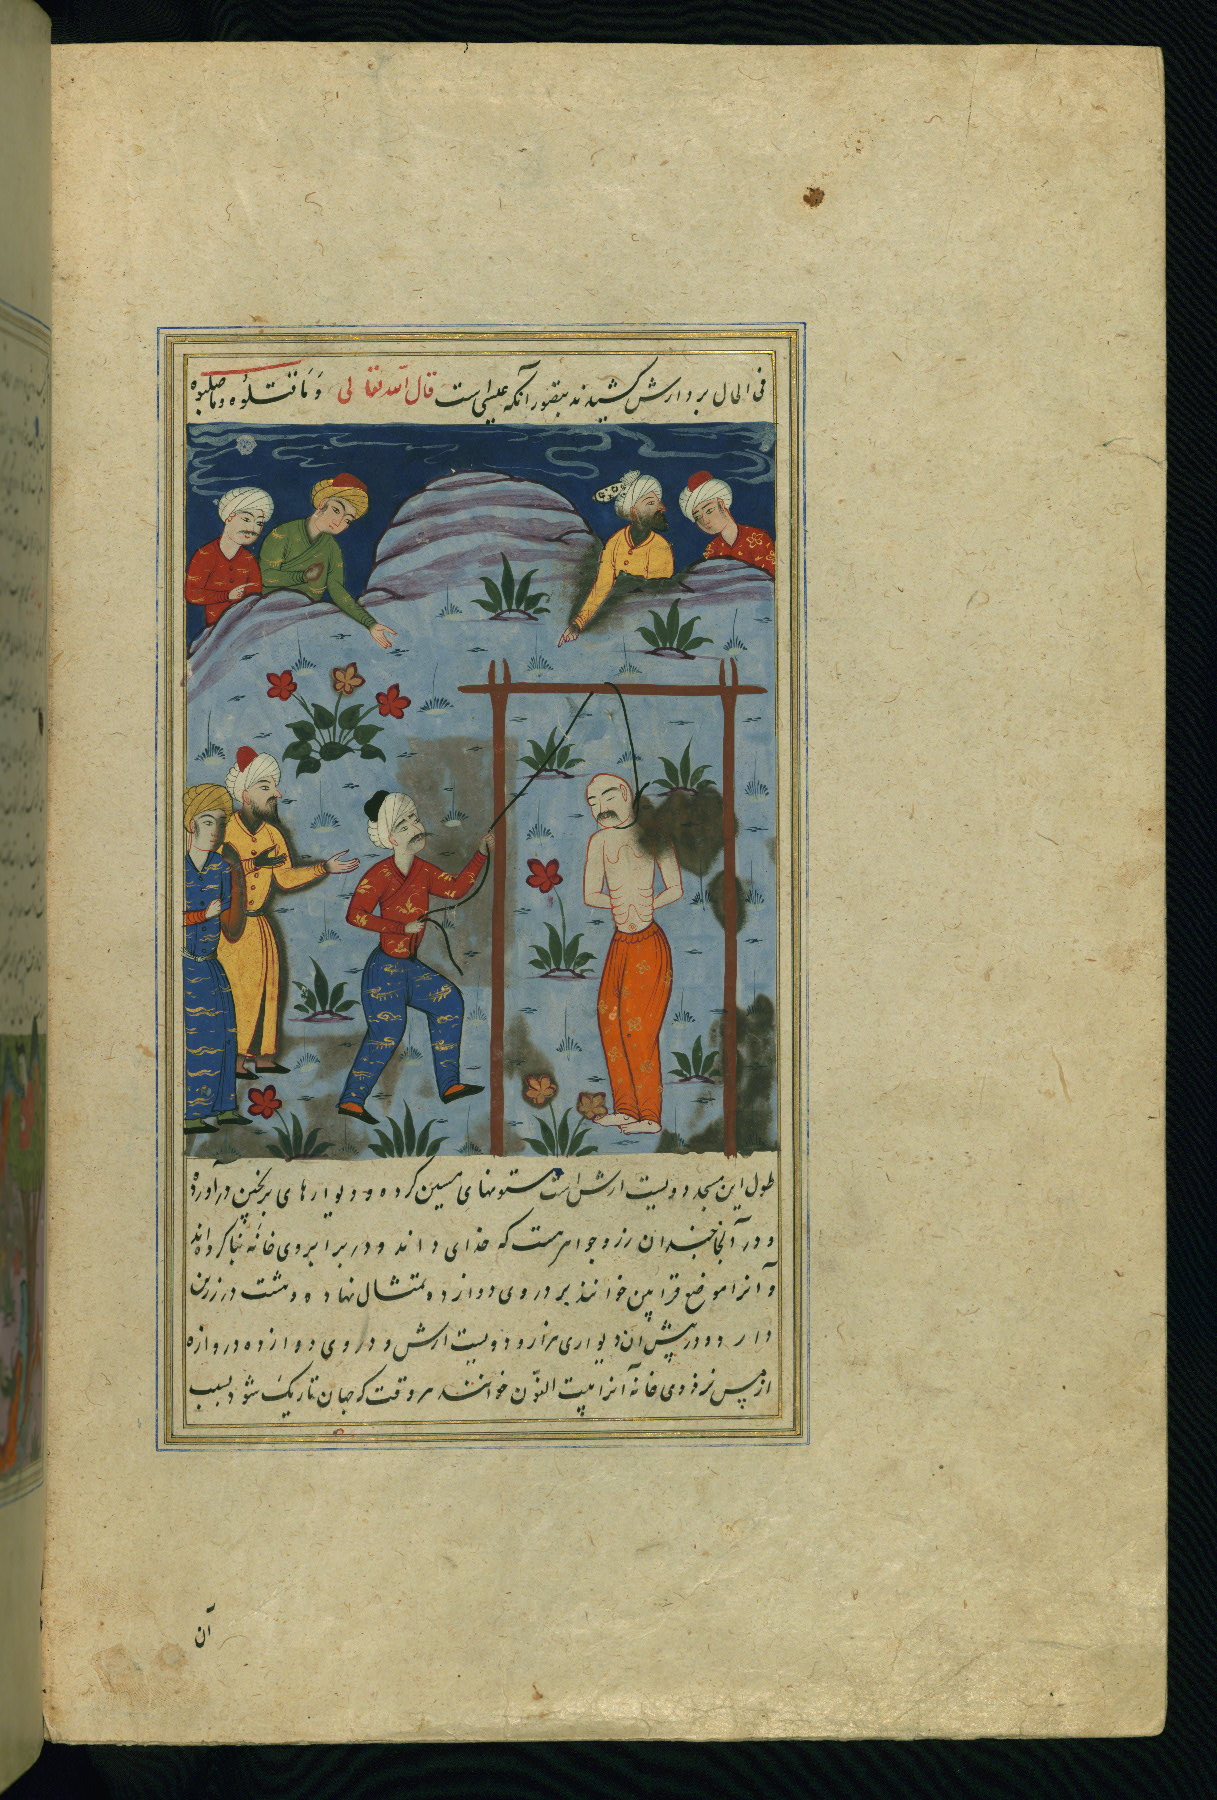 فی الحال بر دارش کشیدند بتصور آنکه عیسی است قال الله تعالی وَمَا قَتَلُوه وما صلبوه
طول این مسجد دویست ارش است ستونهای مسین کرده و دیوارهای برنجین در آورده
و در آنجا چندان زر و جواهرست که خدای داند و در برابر روی خانهٔ بنا کرده‌اند
و آنرا موضع قرابین خوانند بر در وی دوازده تمثال نهاده و هشت در زرین
دارد و در پیش آن دیواری هزار و دویست ارش و در وی دوازده دروازه
از مس نزد وی خانه آنرا بیت خوانند هر وقت که جهان تاریک شود بسبب
آن